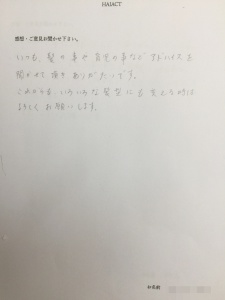 HAIACT
感想・ご意見お聞かせ下さい。
いつも、髪の事や 自宅の事など アドバイスを
聞かせて頂き ありがたいです。
これからも、いろいろな 髪型に 出来る時は
よろしく お願いします。
お名前